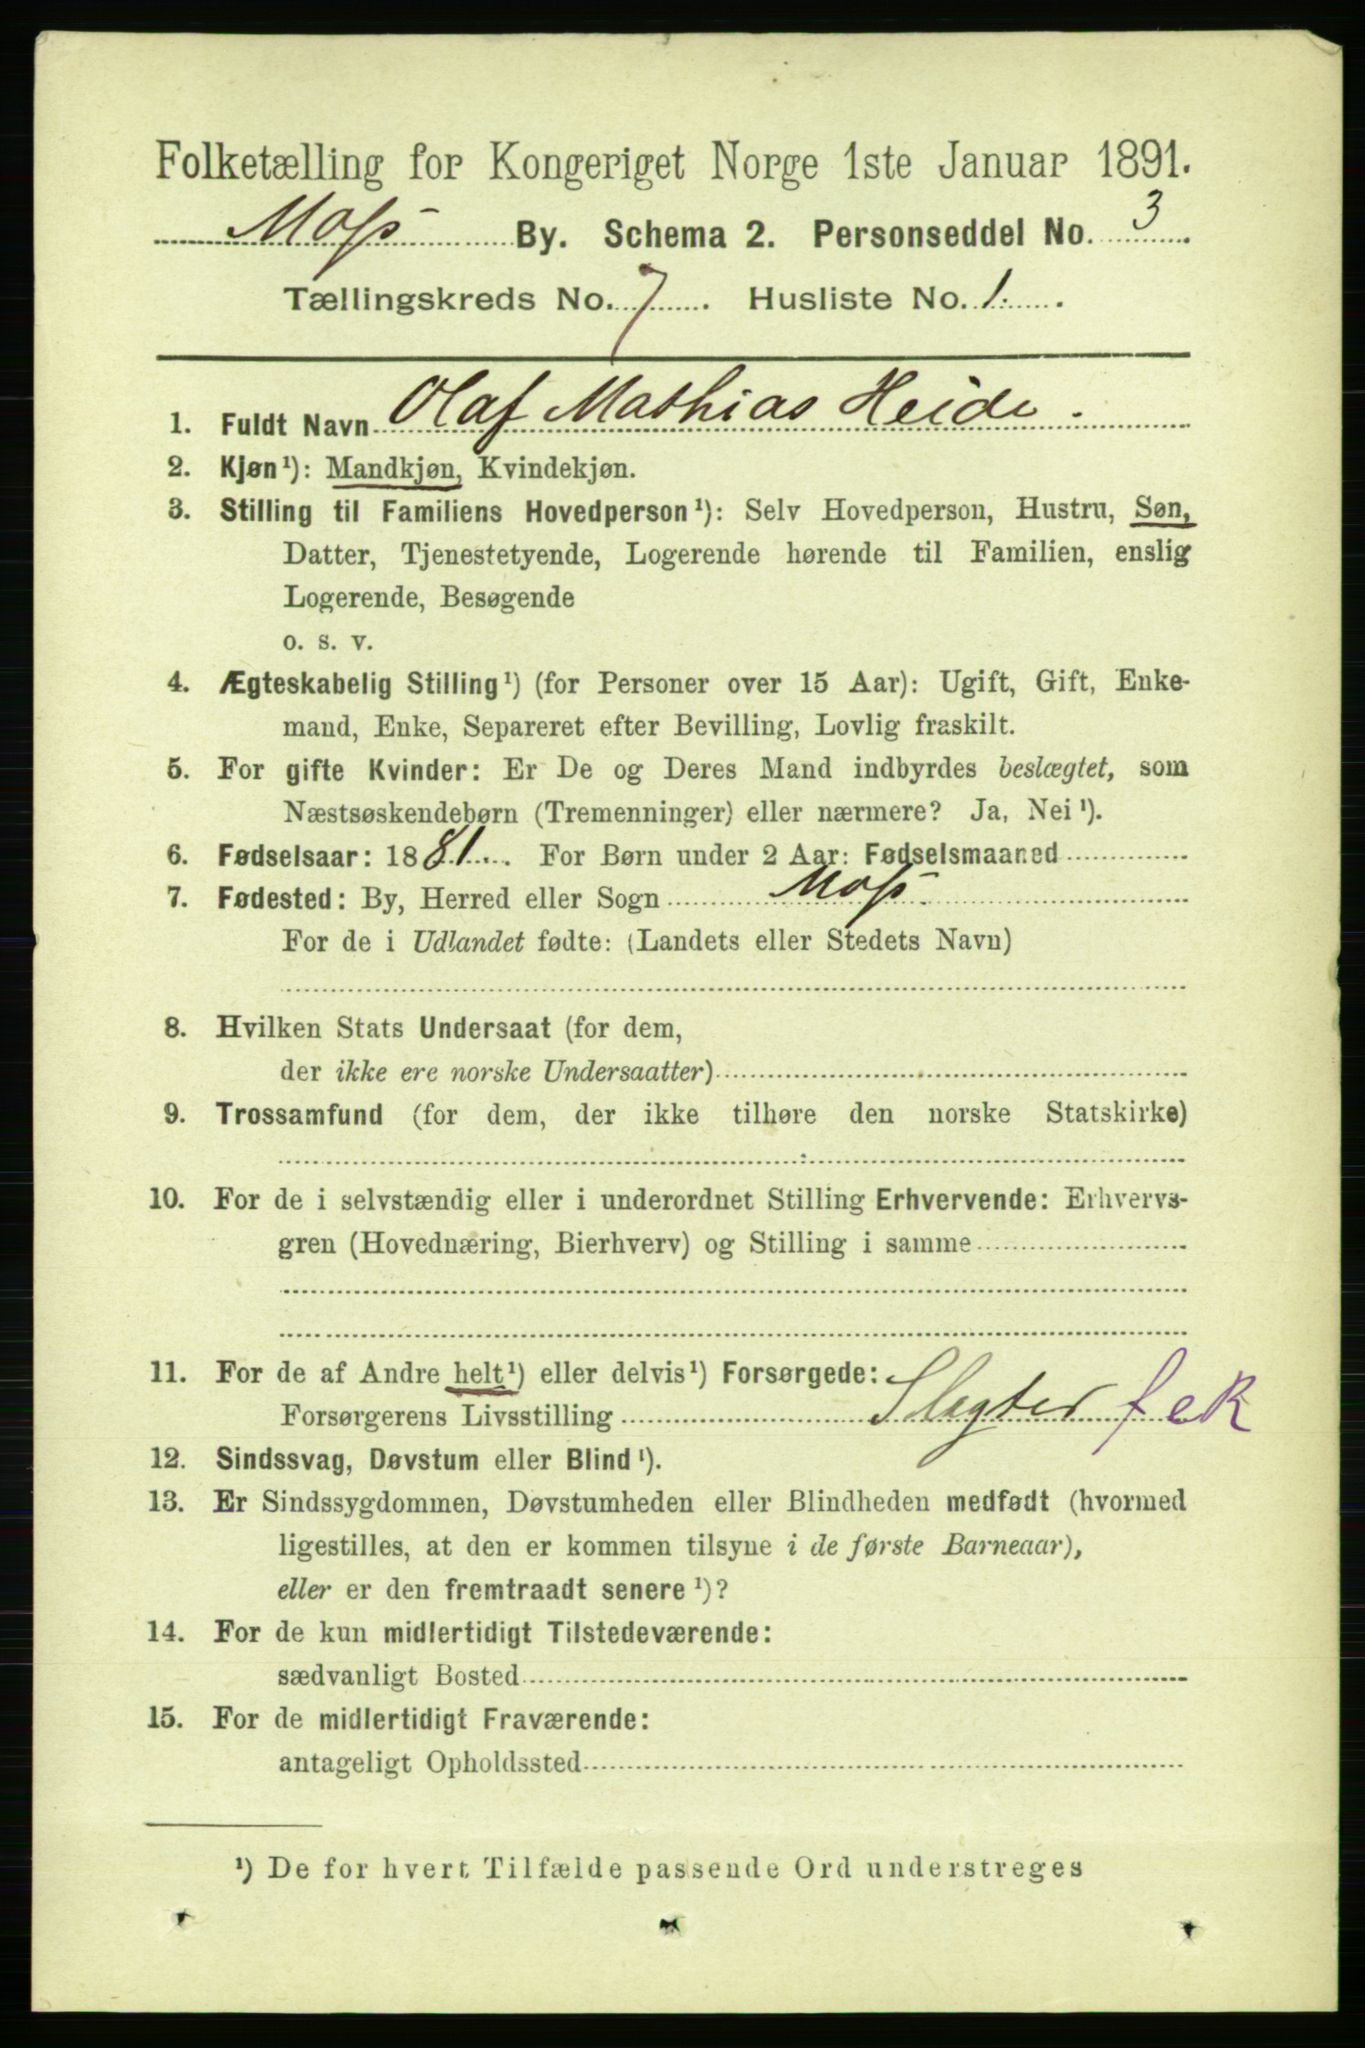 Folketælling for Kongeriget Norge 1ste Januar 1891.
Moss By. Schema 2. Personseddel No. 3
Tællingskreds No. 7. Husliste No. 1.
1. Fuldt Navn Olaf Mathias Heide.
2. Kjøn¹): Mandkjøn, Kvindekjøn.
3. Stilling til Familiens Hovedperson¹): Selv Hovedperson, Hustru, Søn,
Datter, Tjenestetyende, Logerende hørende til Familien, enslig
Logerende, Besøgende
o. s. v.
4. Ægteskabelig Stilling¹) (for Personer over 15 Aar): Ugift, Gift, Enke-
mand, Enke, Separeret efter Bevilling, Lovlig fraskilt.
5. For gifte Kvinder: Er De og Deres Mand indbyrdes beslægtet, som
Næstsøskendebørn (Tremenninger) eller nærmere? Ja, Nei¹).
6. Fødselsaar: 1881. For Børn under 2 Aar: Fødselsmaaned
7. Fødested: By, Herred eller Sogn Moss.
For de i Udlandet fødte: (Landets eller Stedets Navn)
8. Hvilken Stats Undersaat (for dem,
der ikke ere norske Undersaatter)
9. Trossamfund (for dem, der ikke tilhøre den norske Statskirke)
10. For de i selvstændig eller i underordnet Stilling Erhvervende: Erhvervs-
gren (Hovednæring, Bierhverv) og Stilling i samme
11. For de af Andre helt¹) eller delvis¹) Forsørgede:
Forsørgerens Livsstilling Slagter f e k
12. Sindssvag, Døvstum eller Blind¹).
13. Er Sindssygdommen, Døvstumheden eller Blindheden medfødt (hvormed
ligestilles, at den er kommen tilsyne i de første Barneaar),
eller er den fremtraadt senere¹)?
14. For de kun midlertidigt Tilstedeværende:
sædvanligt Bosted
15. For de midlertidigt Fraværende:
antageligt Opholdssted
¹) De for hvert Tilfælde passende Ord understreges